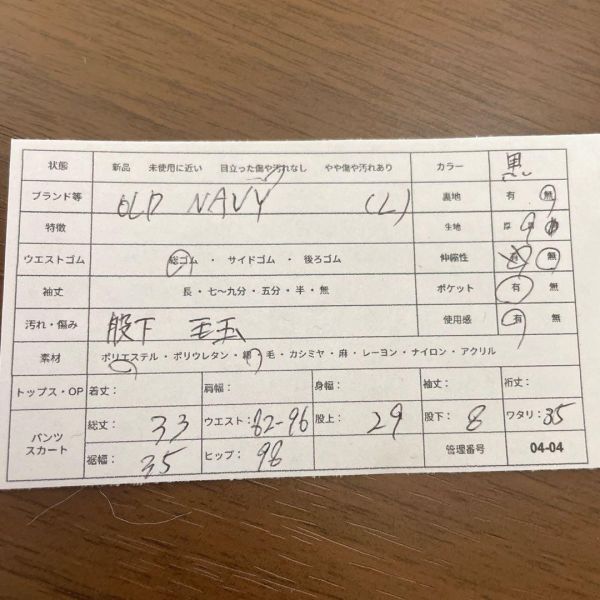 状態 新品 未使用に近い 目立った傷や汚れなし やや傷や汚れあり カラー 黒
ブランド等 OLD NAVY (L) 裏地 有 無
特徴 生地 厚
ウエストゴム 総ゴム ・ サイドゴム ・ 後ろゴム 伸縮性 有 無
袖丈 長・七〜九分・五分・半・無 ポケット 有 無
汚れ・傷み 股下 毛玉 使用感 有 無
素材 ポリエステル・ポリウレタン・綿・毛・カシミヤ・麻・レーヨン・ナイロン・アクリル
トップス・OP 着丈: 肩幅: 身幅: 袖丈: 裄丈:
パンツ スカート 総丈: 33 ウエスト: 82-96 股上: 29 股下: 8 ワタリ: 35
裾幅: 35 ヒップ: 98 管理番号 04-04